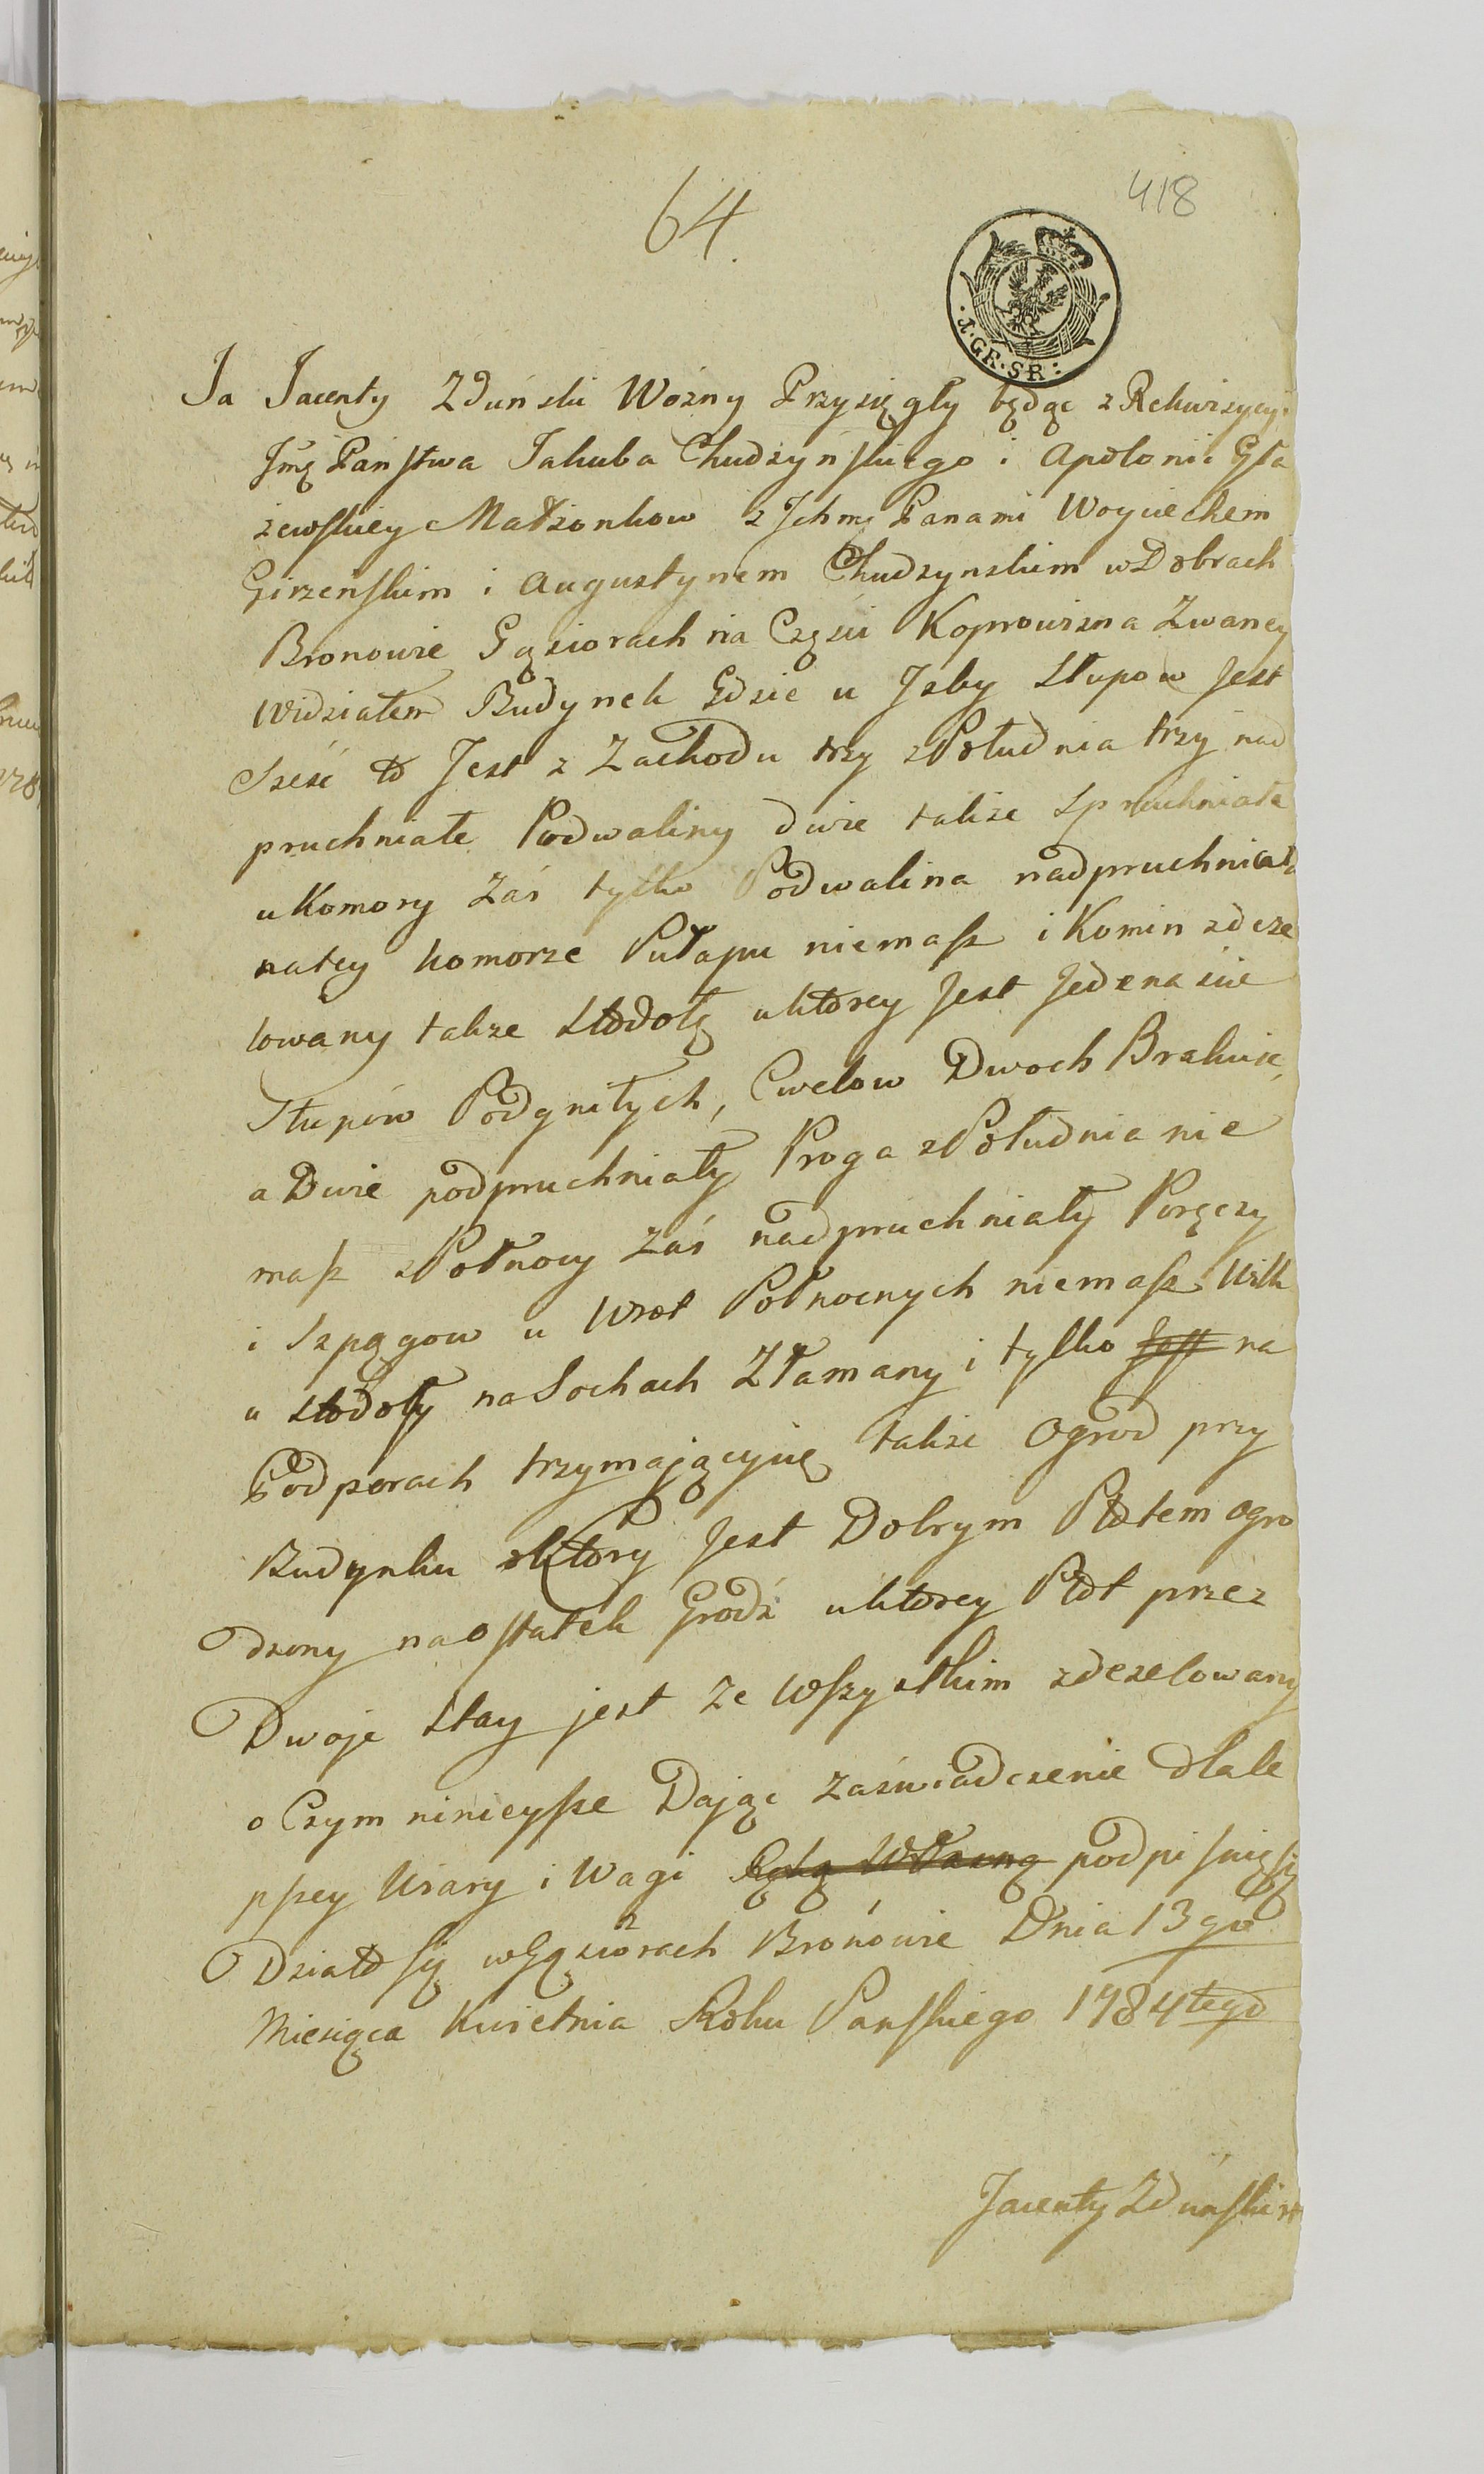 418
64.
. 1 . GR . SR :
Ja Jacenty Zduński Woźny Przysięgły będąc z Rekwizycyi
Jmę Państwa Jakuba Chudzyńskiego i Apolonii Gła
żewskiey Małżonkow z Jchmę Panami Woyciechem
Girzenskim i Augustynem Chudzynskim w Dobrach
Bronowie Gąsiorach na Częsci Koprowizna Zwaney
Widziałem Budynek Gdzie u Jzby Słupow Jest
Sześć to Jest z Zachodu trzy z Południa trzy nad
pruchniałe Podwaliny dwie także spruchniałe
u Komory Zaś tylko Podwalina nadpruchniała
na tey komorze Pułapu niemasz i Komin zdeze
lowany także Stodołę u ktorey Jest Jedenascie
Słupów Podgniłych, Cwelow Dwoch Brakuie,
a Dwie podpruchniały Proga z Południa nie
masz z Połnocy Zaś nadpruchniały Poręczy
i Szpągow u Wrot Połnocnych niemasz Wilk
u Stodoły na Sochach Złamany i tylko Jest na
Podporach trzymaiącysię także Ogrod przy
Budynku Ktory Jest Dobrym Płotem ogro
dzony na ostatek Grodź u ktorey Płot przez
Dwoje Stay jest ze Wszystkim zdezelowany
o Czym ninieysze Daiąc zaświadczenie dla le
pszey Wiary i Wagi Ręką Własną podpisuięsię
Działo się w Gąsiorach Bronowie Dnia 13go
Miesiąca Kwietnia Roku Panskiego 1784tego
Jacenty Zduński